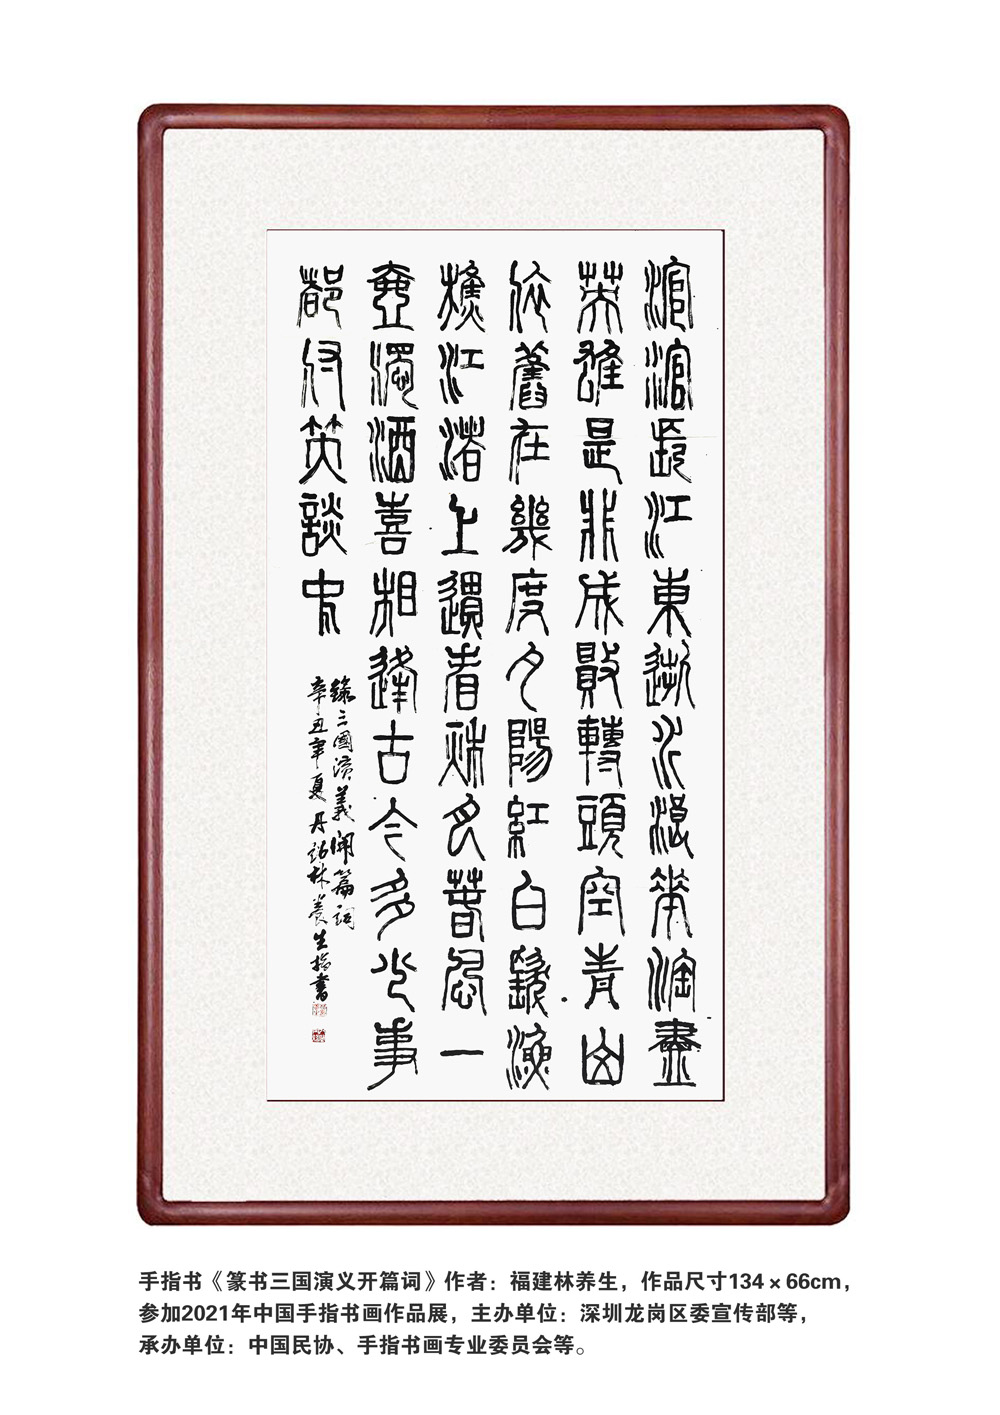 滾滾長江東逝水浪花淘盡
英雄是非成敗轉頭空青山
依舊在幾度夕陽紅白髮漁
樵江渚上慣看秋月春風一
壺濁酒喜相逢古今多少事
都付笑談中
錄三國演義開篇詞
辛丑年夏丹詔林養生指書
手指书《篆书三国演义开篇词》作者：福建林养生，作品尺寸134×66cm，
参加2021年中国手指书画作品展，主办单位：深圳龙岗区委宣传部等，
承办单位：中国民协、手指书画专业委员会等。